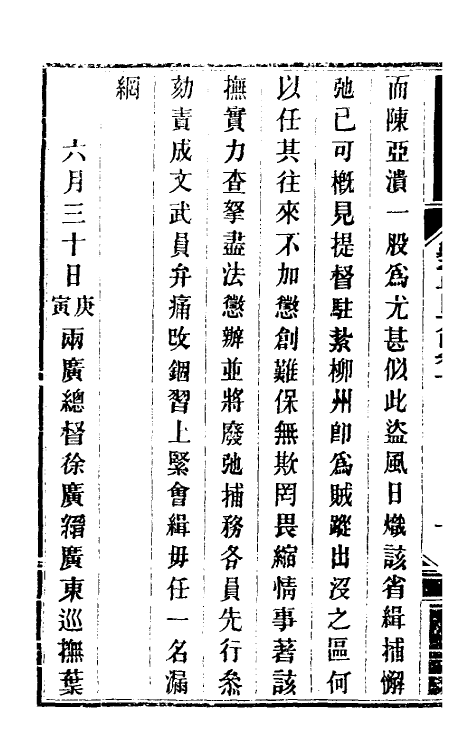 而陳亞潰一股爲尤甚似此盜風日熾該省緝捕懈
弛已可槪見提督駐紥柳州卽爲賊蹤出沒之區何
以任其往來不加懲創難保無欺罔畏縮情事著該
撫實力查拏盡法懲辦並將廢弛捕務各員先行叅
劾責成文武員弁痛改錮習上緊會緝毋任一名漏
網
六月三十日庚寅兩廣總督徐廣縉廣東巡撫葉